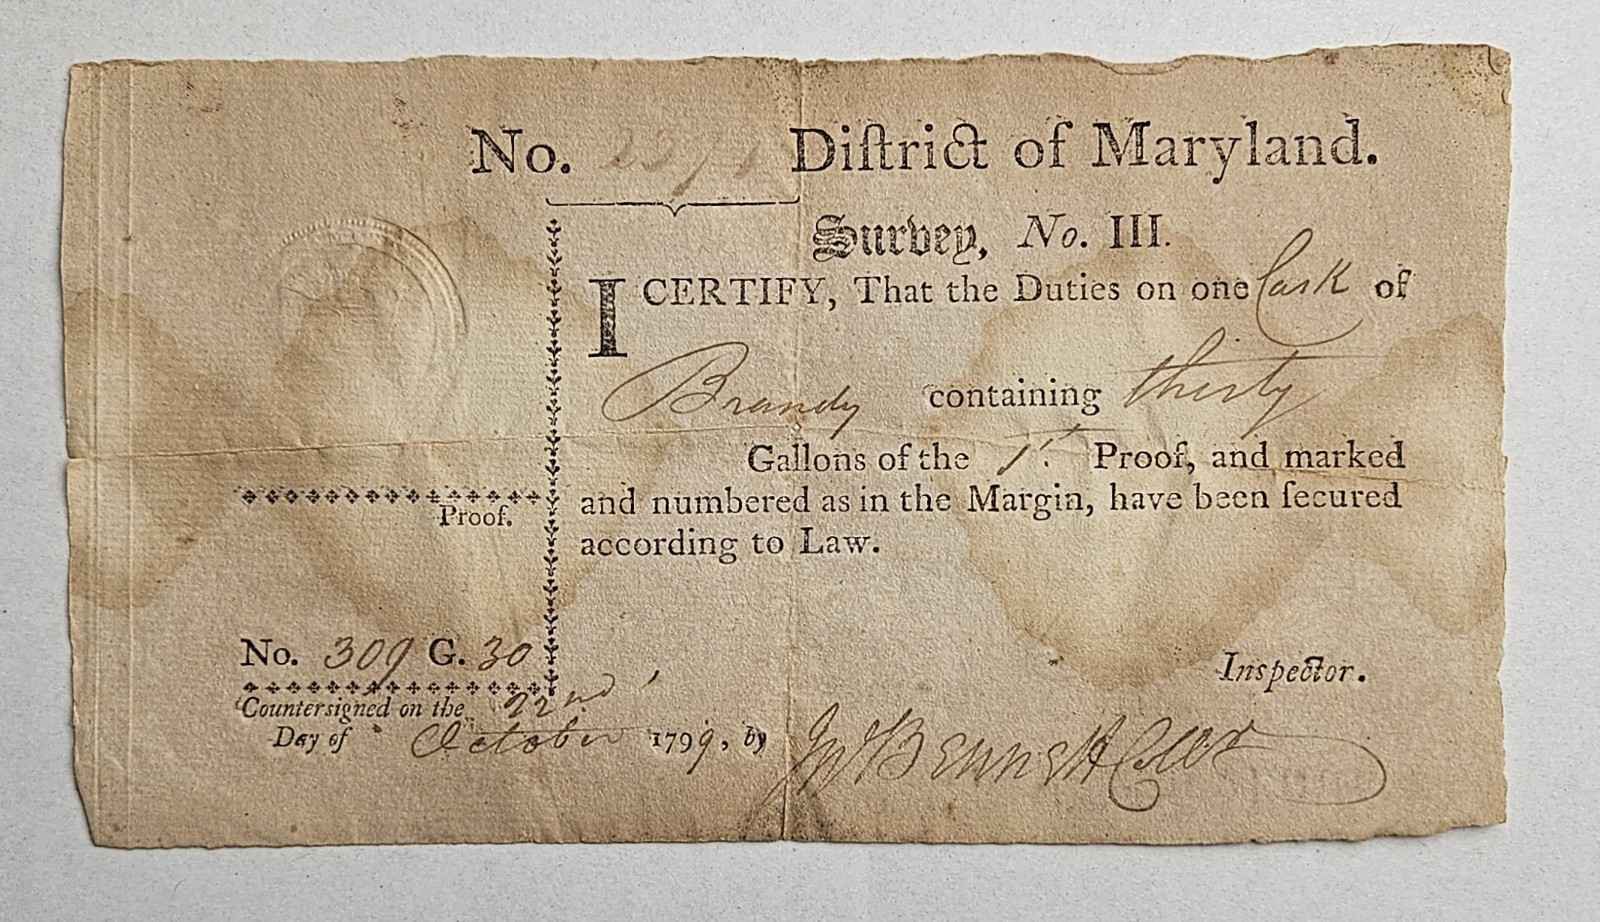 No. District of Maryland.
Survey, No. III.
I CERTIFY, That the Duties on one Cask of
Brandy containing thirty
Gallons of the 1st Proof, and marked
and numbered as in the Margin, have been secured
according to Law.
Proof.
No. 309 G. 30
Inspector.
Countersigned on the 22nd
Day of October 1799, by Jn Bennett Collr